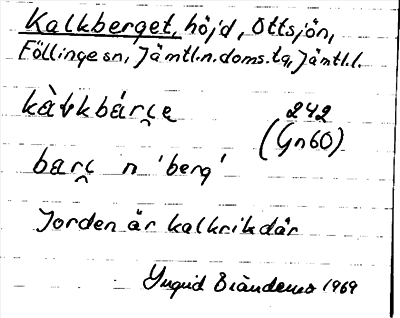 Kalkberget, höjd, Ottsjön,
Föllinge sn, Jämtl.n.doms.tg, Jämtl.l.
kàɫkbárç̭e 242
(Gn60)
barç̭ n 'berg'
Jorden är kalkrik där
Yngrid 1969